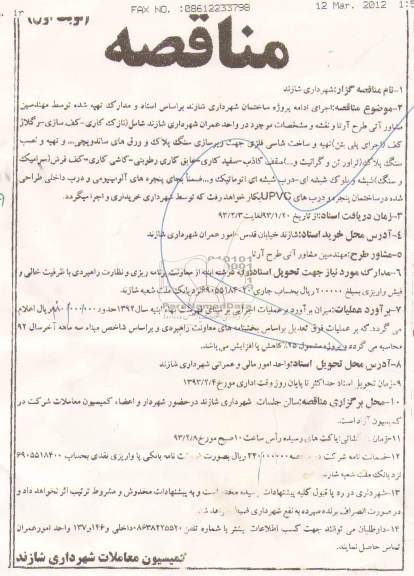 FAX NO. :08612233798 12 Mar. 2012
(نوبت اول)
مناقصه
۱-نام مناقصه گزار:شهرداری شازند
۲-موضوع مناقصه:اجرای ادامه پروژه ساختمان شهرداری شازند براساس اسناد و مدارک تهیه شده توسط مهندسین
مشاور آتی طرح آرتا و نقشه و مشخصات موجود در واحد عمران شهرداری شازند شامل(نازک کاری-کف سازی-رگلاژ
کف (اجرای پلی بتن)تهیه و ساخت شاسی فلزی جهت زیرسازی سنگ پلاک و ورق های ساندویچی... و تهیه و نصب
سنگ پلاک(تراورتن و گرانیت و...)سقف کاذب-سفید کاری-عایق کاری رطوبتی-کاشی کاری-کف فرش(سرامیک
و سنگ)شیشه وبلوک شیشه ای-درب شیشه ای اتوماتیک و...ضمناً بجای پنجره های آلومینیومی و درب داخلی طراحی
شده درساختمان پنجره و درب های UPVC بکار خواهد رفت که توسط شهرداری خریداری و اجرا میگردد.
۳-زمان دریافت اسناد:از تاریخ ۹۳/۱/۲۰لغایت۹۳/۲/۳
۴-آدرس محل خرید اسناد:شازند خیابان قدس-امور عمران شهرداری شازند
۵-مشاور طرح:مهندسین مشاور آتی طرح آرتا
۶-مدارک مورد نیاز جهت تحویل اسناد: رتبه ابنیه از معاونت برنامه ریزی و نظارت راهبردی با ظرفیت خالی و
فیش واریزی بمبلغ ۲۰۰۰۰۰ ریال بحساب جاری ۶۹۰۵۵۱۸۴۰۰ نزد بانک ملت شعبه شازند
۷-برآورد عملیات:میزان برآورد بر عملیات اجرایی بر مبنای فهرست بهاء ابنیه سال۱۳۹۲حدود ریال اعلام
می گردد که بر عملیات فوق تعدیل براساس بخشنامه های معاونت راهبردی و براساس شاخص مبناء سه ماهه آخرسال ۹۲
محاسبه می گردد و پروژه مشمول ۲۵٪ کاهش یا افزایش می باشد.
۸-آدرس محل تحویل اسناد:واحد امور مالی و عمرانی شهرداری شازند
۹-زمان تحویل اسناد حداکثر تا پایان روز وقت اداری مورخ۱۳۹۳/۲/۴
۱۰-محل برگزاری مناقصه:سالن جلسات شهرداری شازند درحضور شهردار و اعضاء کمیسیون معاملات شرکت در
کمیسیون آزاد است.
۱۱-زمان پاکت های رسیده رأس ساعت ۱۰صبح مورخ۹۳/۲/۸
۱۲-ضمانت نامه شرکت در ریال بصورت نامه بانکی یا واریزی نقدی بحساب ۶۹۰۵۵۱۸۴۰۰
نزد بانک ملت شعبه شازند
۱۳-شهرداری در رد یا قبول کلیه پیشنهادات رسیده مختار است و به پیشنهادات مخدوش و مشروط ترتیب اثر نخواهد داد و
در صورت انصراف برنده سپرده به نفع شهرداری ضبط خواهد شد.
۱۴-داوطلبان می توانند جهت کسب اطلاعات بیشتر با شماره تلفن ۰۸۶۳۸۲۲۵۵۲۰داخلی ۱۴۶و۱۳۷ واحد امورعمران
تماس حاصل نمایند.
کمیسیون معاملات شهرداری شازند